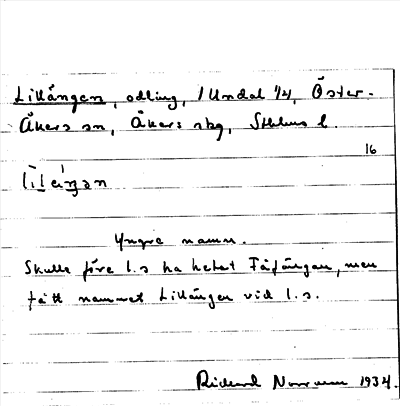 Lillängen, odling, /Undal 1/4, Öster-
Åkers sn, Åkers skg, Sthlms l.
16
Yngre namn.
Skulle före l.s ha hetat Fåfängan, men
fått namnet Lillängen vid l.s.
Rickard 1934.